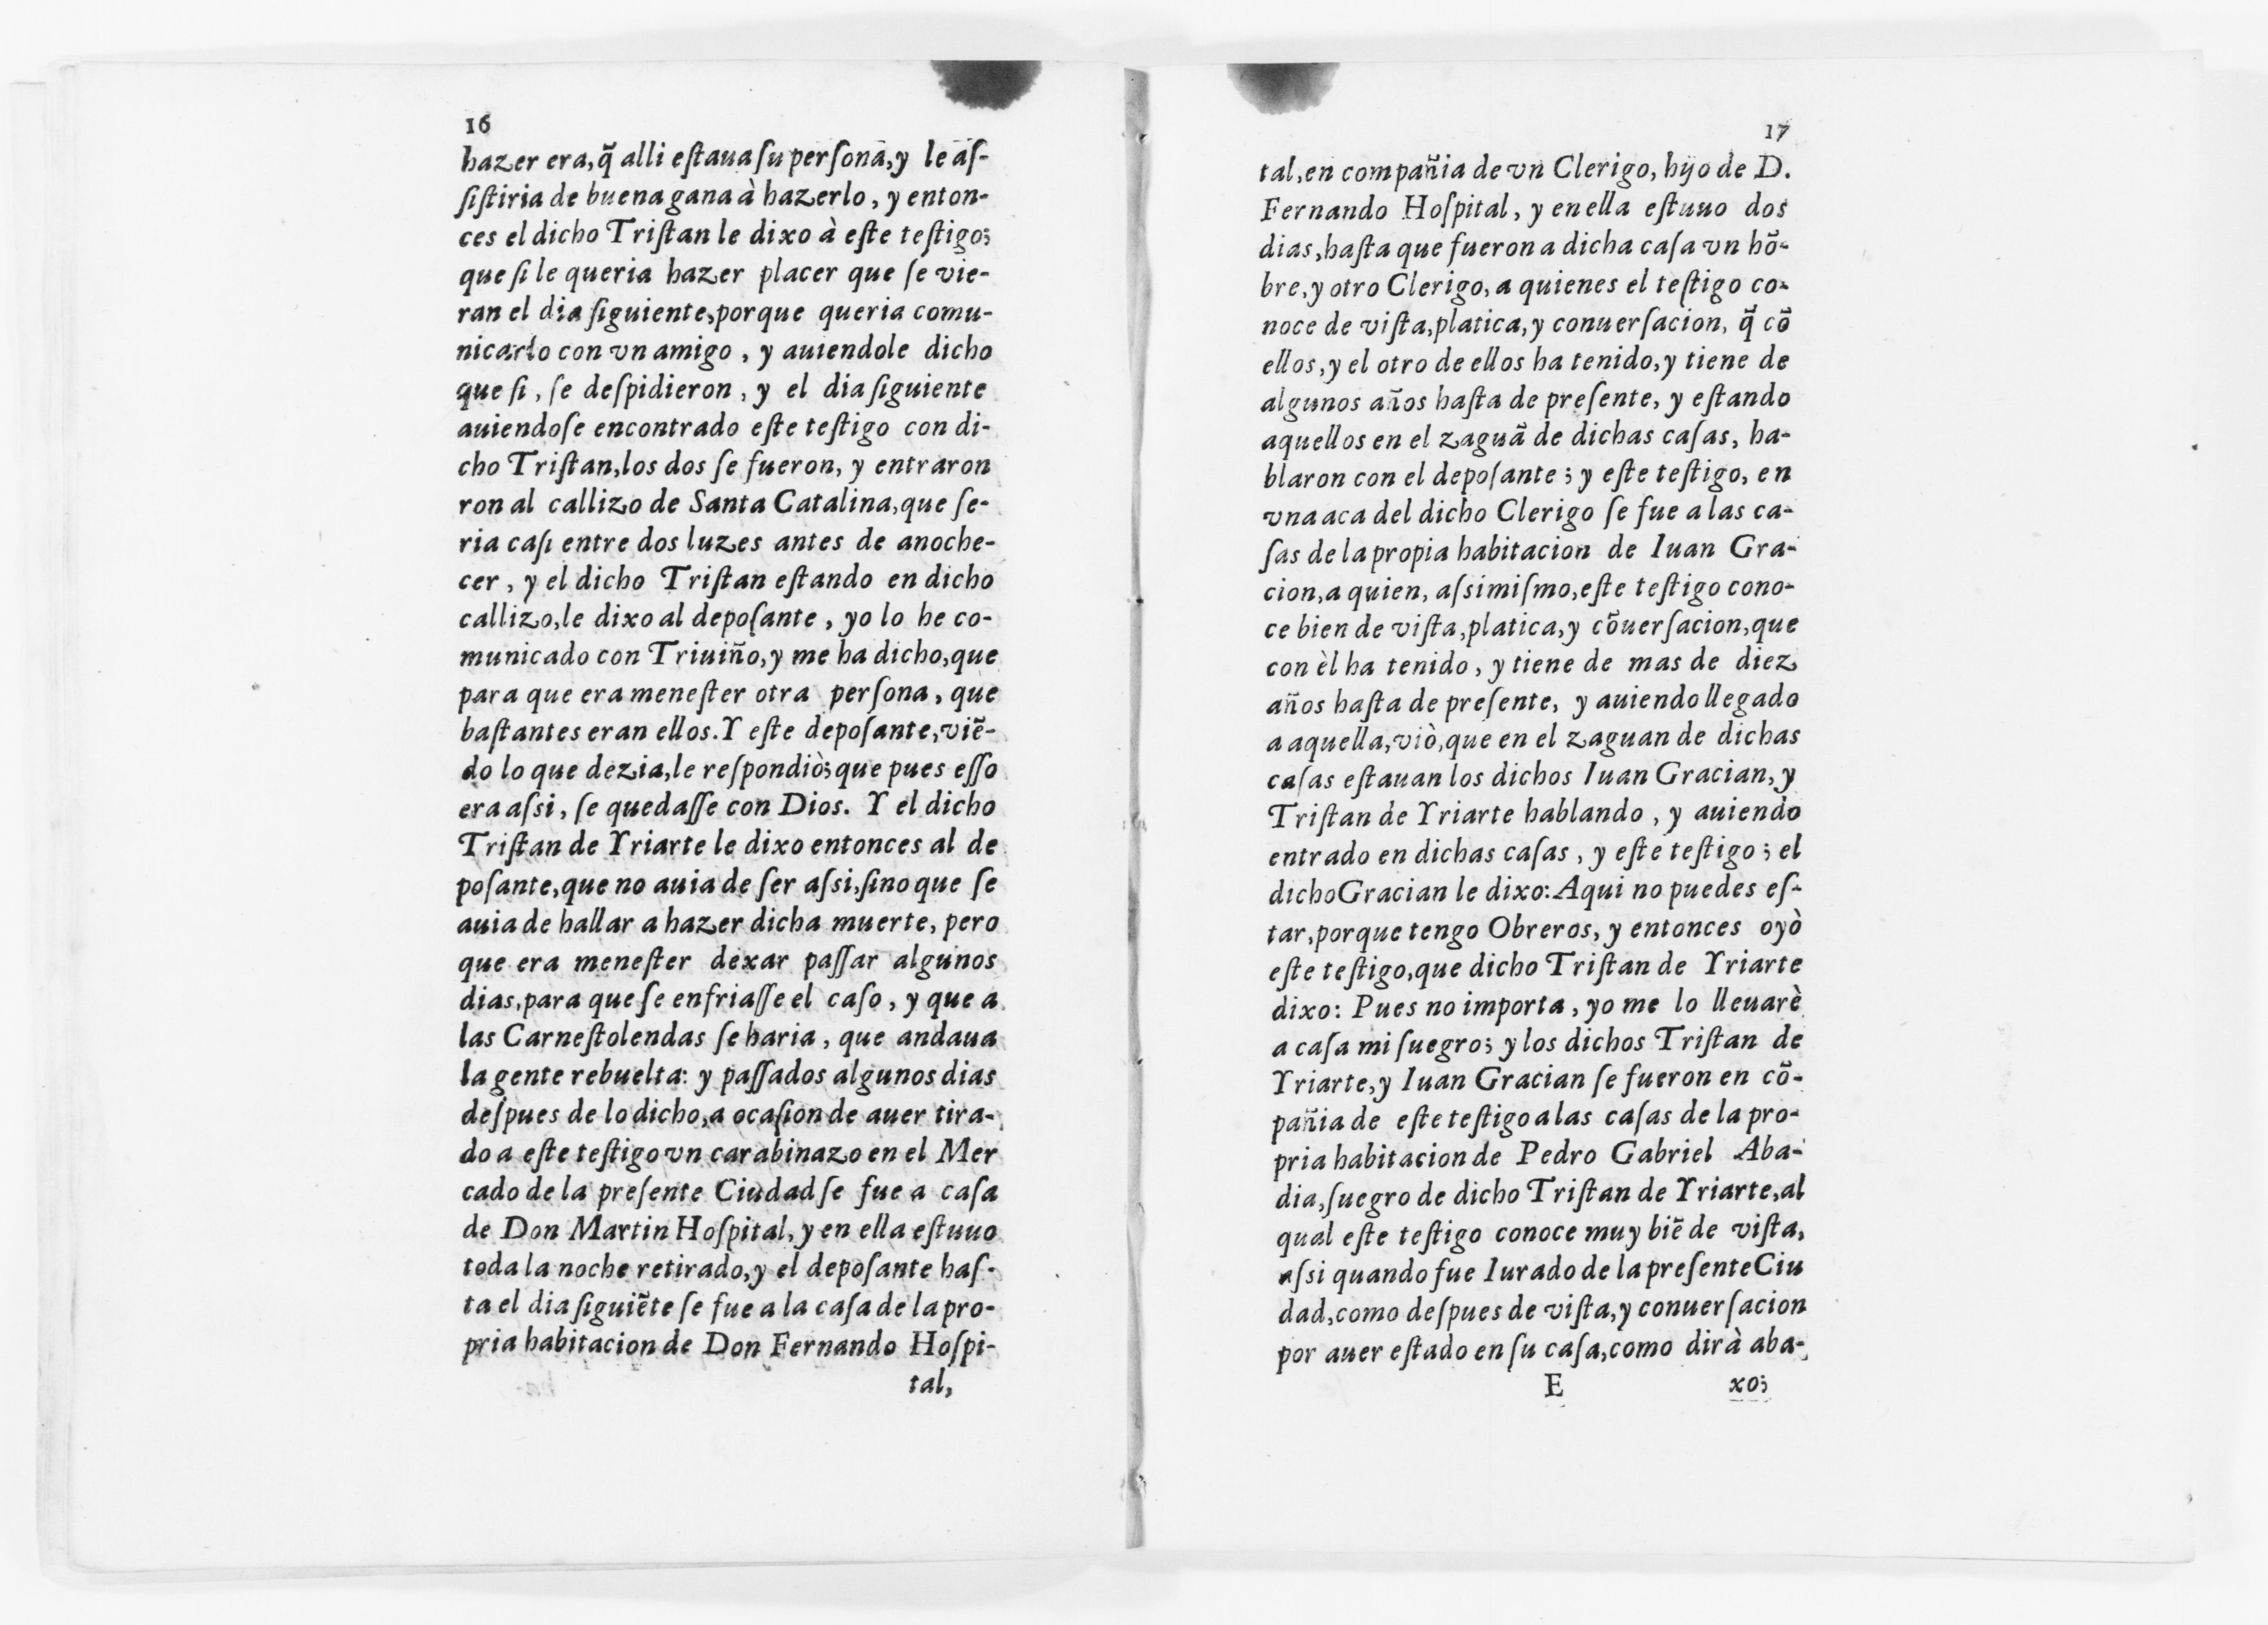 16
hazer era,q̃ alli eſtaua ſu perſona,y le aſ-
ſiſtiria de buena gana à hazerlo, y enton-
ces el dicho Triſtan le dixo à eſte teſtigo;
que ſi le queria hazer placer que ſe vie-
ran el dia ſiguiente,porque queria comu-
nicarlo con vn amigo, y auiendole dicho
que ſi, ſe deſpidieron, y el dia ſiguiente
auiendoſe encontrado eſte teſtigo con di-
cho Triſtan,los dos ſe fueron, y entraron
ron al callizo de Santa Catalina,que ſe-
ria caſi entre dos luzes antes de anoche-
cer, y el dicho Triſtan eſtando en dicho
callizo,le dixo al depoſante, yo lo he co-
municado con Triuiño,y me ha dicho,que
para que era meneſter otra perſona, que
baſtantes eran ellos.Y eſte depoſante,viẽ-
do lo que dezia,le reſpondiò;que pues eſſo
era aſsi, ſe quedaſſe con Dios. Y el dicho
Triſtan de Yriarte le dixo entonces al de
poſante,que no auia de ſer aſsi,ſino que ſe
auia de hallar a hazer dicha muerte, pero
que era meneſter dexar paſſar algunos
dias,para que ſe enfriaſſe el caſo, y que a
las Carneſtolendas ſe haria, que andaua
la gente rebuelta: y paſſados algunos dias
deſpues de lo dicho,a ocaſion de auer tira-
do a eſte teſtigo vn carabinazo en el Mer
cado de la preſente Ciudad ſe fue a caſa
de Don Martin Hoſpital, y en ella eſtuuo
toda la noche retirado,y el depoſante haſ-
ta el dia ſiguiẽte ſe fue a la caſa de la pro-
pria habitacion de Don Fernando Hoſpi-
tal,
17
tal,en compañia de vn Clerigo, hijo de D.
Fernando Hoſpital, y en ella eſtuuo dos
dias,haſta que fueron a dicha caſa vn hõ-
bre,y otro Clerigo, a quienes el teſtigo co-
noce de viſta,platica,y conuerſacion, q̃ cõ
ellos,y el otro de ellos ha tenido,y tiene de
algunos años haſta de preſente, y eſtando
aquellos en el zaguã de dichas caſas, ha-
blaron con el depoſante; y eſte teſtigo, en
vna aca del dicho Clerigo ſe fue a las ca-
ſas de la propia habitacion de Iuan Gra-
cion,a quien, aſsimiſmo,eſte teſtigo cono-
ce bien de viſta,platica,y cõuerſacion,que
con èl ha tenido, y tiene de mas de diez
años haſta de preſente, y auiendo llegado
a aquella,viò,que en el zaguan de dichas
caſas eſtauan los dichos Iuan Gracian, y
Triſtan de Yriarte hablando, y auiendo
entrado en dichas caſas, y eſte teſtigo; el
dicho Gracian le dixo: Aqui no puedes eſ-
tar,porque tengo Obreros, y entonces oyò
eſte teſtigo,que dicho Triſtan de Yriarte
dixo: Pues no importa, yo me lo lleuarè
a caſa mi ſuegro; y los dichos Triſtan de
Yriarte,y Iuan Gracian ſe fueron en cõ-
pañia de eſte teſtigo a las caſas de la pro-
pria habitacion de Pedro Gabriel Aba-
dia,ſuegro de dicho Triſtan de Yriarte,al
qual eſte teſtigo conoce muy biẽ de viſta,
aſsi quando fue Iurado de la preſente Ciu
dad,como deſpues de viſta,y conuerſacion
por auer eſtado en ſu caſa,como dirà aba-
E xo;